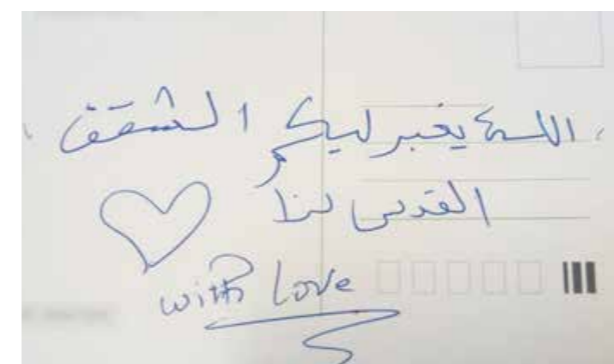 الله يغبر ليكم الشقف
القدس لنا
with love